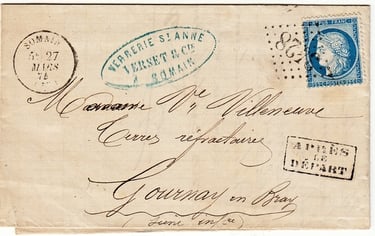 SOMAIN
27
MARS
74
VERRERIE STE ANNE
VERSET & CIE
À SOMAIN
APRÈS
LE
DÉPART
Madame Ve Villeneuve
Terres réfractaires
Gournay en Bray
(Seine infre)